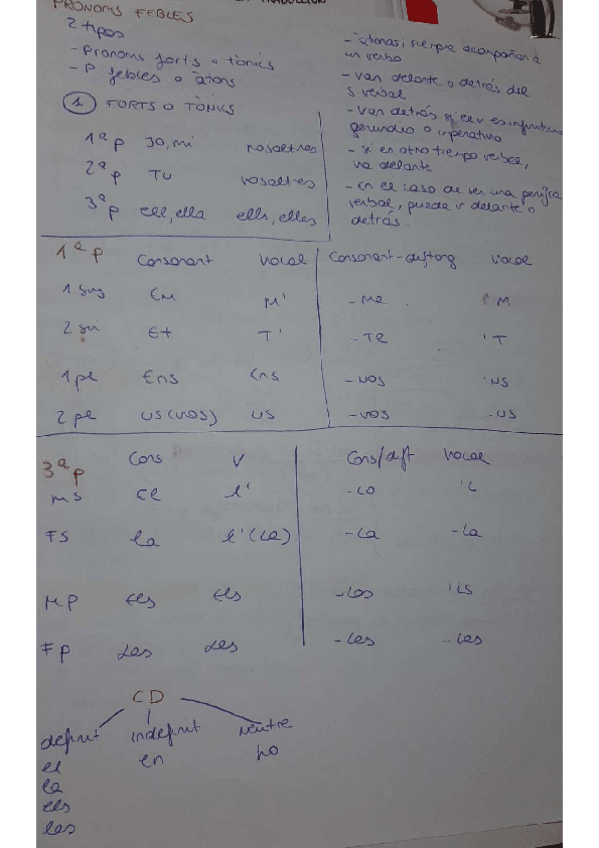 PRONOMS FEBLES
2 tipos
- Pronoms forts o tònics
- P. febles o àtons
1 FORTS O TÒNICS
1ª p Jo, mi nosaltres
2ª p Tu vosaltres
3ª p ell, ella ells, elles
- àtonas, siempre acompañan a
un verbo
- van delante o detrás del
s verbal
- Van detrás si es infinitivo
gerundio o imperativo
- si es otro tiempo verbal,
va delante
- en el caso de ser una perífra
verbal, puede ir delante o
detrás.
1ª p Consonant Vocal Consonant-diftong Vocal
1 sing Em M' -Me 'M
2 sin Et T' -Te 'T
1 pl Ens Ens -nos 'NS
2 pl us (vos) us -vos -us
3ª p Cons V Cons/dift Vocal
ms el l' -lo 'L
FS la l' (la) -la -la
MP els els -los 'LS
FP Les les -les -les
CD
definit indefinit neutre
el en ho
la
els
les